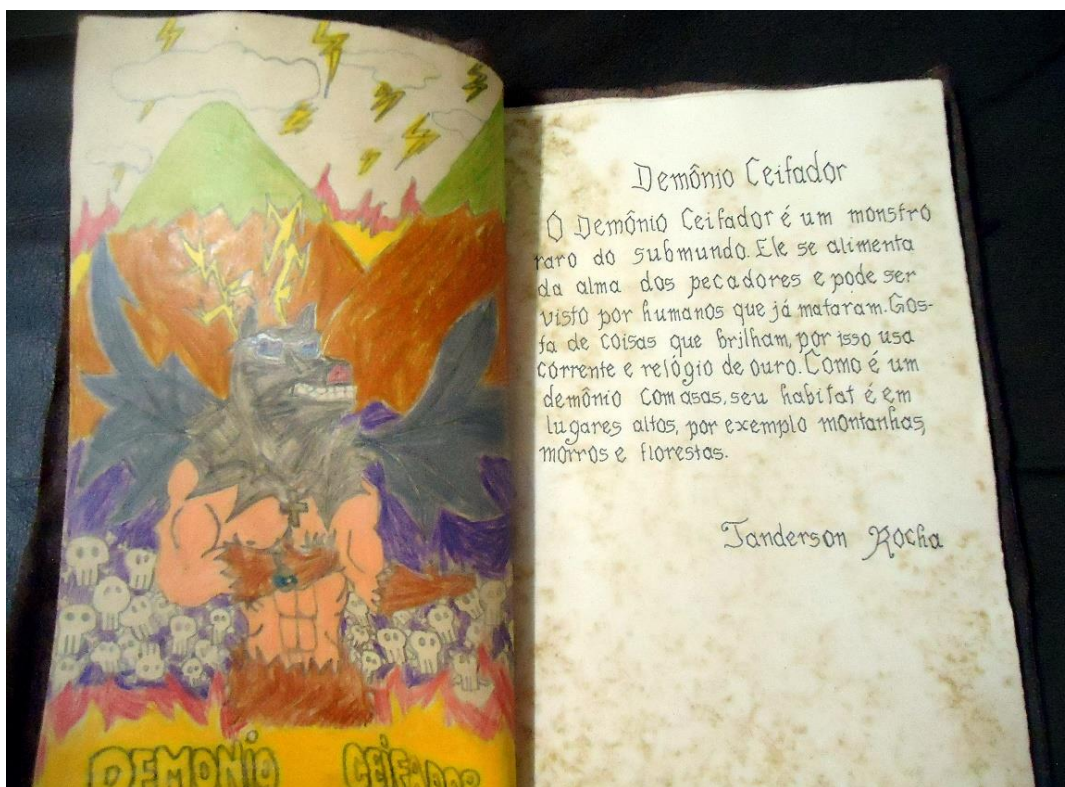 DEMONIO CEIFADOR
Demônio Ceifador
O Demônio Ceifador é um monstro
raro do submundo. Ele se alimenta
da alma dos pecadores e pode ser
visto por humanos que já mataram. Gos-
ta de coisas que brilham, por isso usa
corrente e relógio de ouro. Como é um
demônio com asas, seu habitat é em
lugares altos, por exemplo montanhas,
morros e florestas.
Janderson Rocha